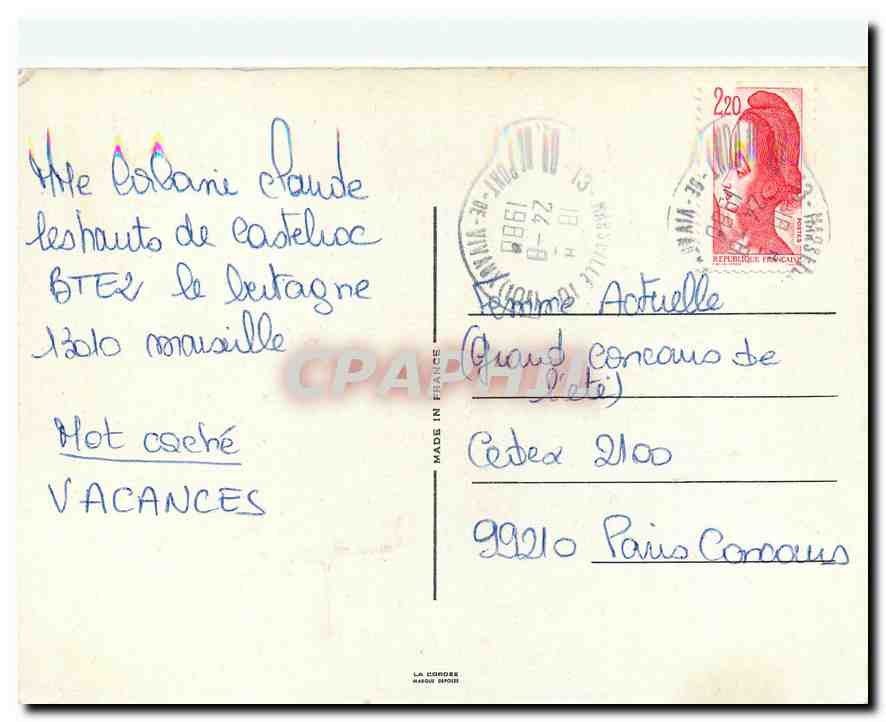 Mme claude
les hauts de Castelroc
BTE2 le bretagne
13010 marseille
Mot caché
VACANCES
MADE IN FRANCE
2,20
POSTES
REPUBLIQUE FRANCAISE
13 - MARSEILLE 10
18 H
24-8
1988
PONT-DE-VIVAUX
Femme Actuelle
(Grand Concours de
l'eté)
Cedex 2100
99210 Paris Concours
CPAPHIL
LA CORDEE
MARQUE DEPOSEE